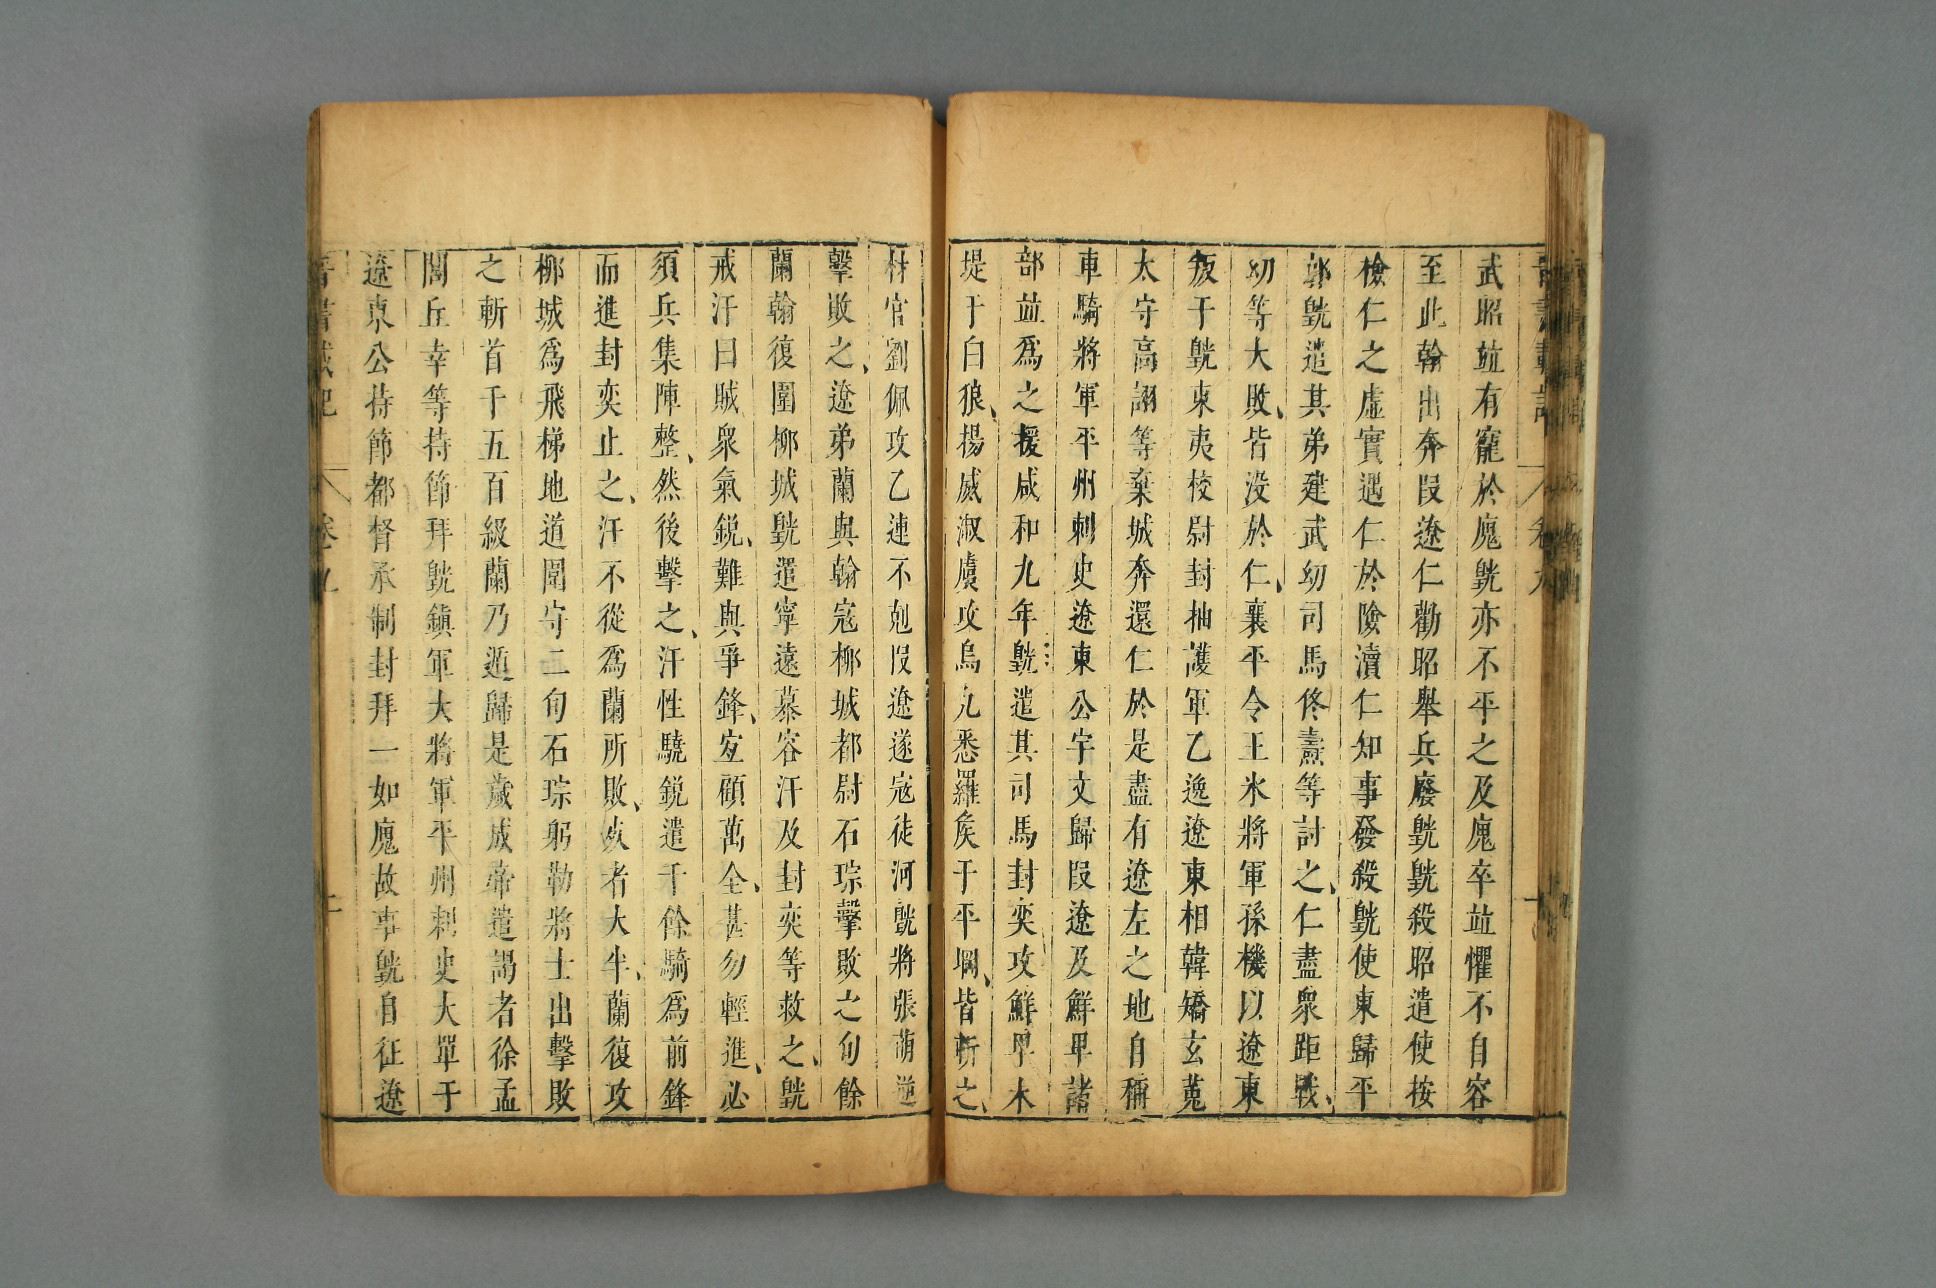 武昭竝有寵於廆皝亦不平之及廆卒竝懼不自容
至此翰出奔段遼仁勸昭舉兵廢皝皝殺昭遣使按
檢仁之虛實遇仁於險瀆仁知事發殺皝使東歸平
郭皝遣其弟建武幼司馬佟燾等討之仁盡衆距戰
幼等大敗皆没於仁襄平令王氷將軍孫機以遼東
叛于皝東夷校尉封抽護軍乙逸遼東相韓矯玄菟
太守高詡等棄城奔還仁於是盡有遼左之地自稱
車騎將軍平州刺史遼東公宇文歸段遼及鮮卑諸
部竝爲之援咸和九年皝遣其司馬封奕攻鮮卑木
堤于白狼揚威淑虞攻烏丸悉羅矦于平堈皆斬之
材官劉佩攻乙連不剋段遼遂寇徒河皝將張萌逆
擊敗之遼弟蘭與翰寇柳城都尉石琮擊敗之旬餘
蘭翰復圍柳城皝遣寧遠慕容汗及封奕等救之皝
戒汗曰賊衆氣銳難與爭鋒宐顧萬全甚勿輕進必
須兵集陣整然後擊之汗性驍銳遣千餘騎爲前鋒
而進封奕止之汗不從爲蘭所敗歿者大半蘭復攻
柳城爲飛梯地道圍守二旬石琮躬勒將士出擊敗
之斬首千五百級蘭乃遁歸是歲成帝遣謁者徐孟
閭丘幸等持節拜皝鎮軍大將軍平州刺史大單于
遼東公持節都督承制封拜一如廆故事皝自征遼